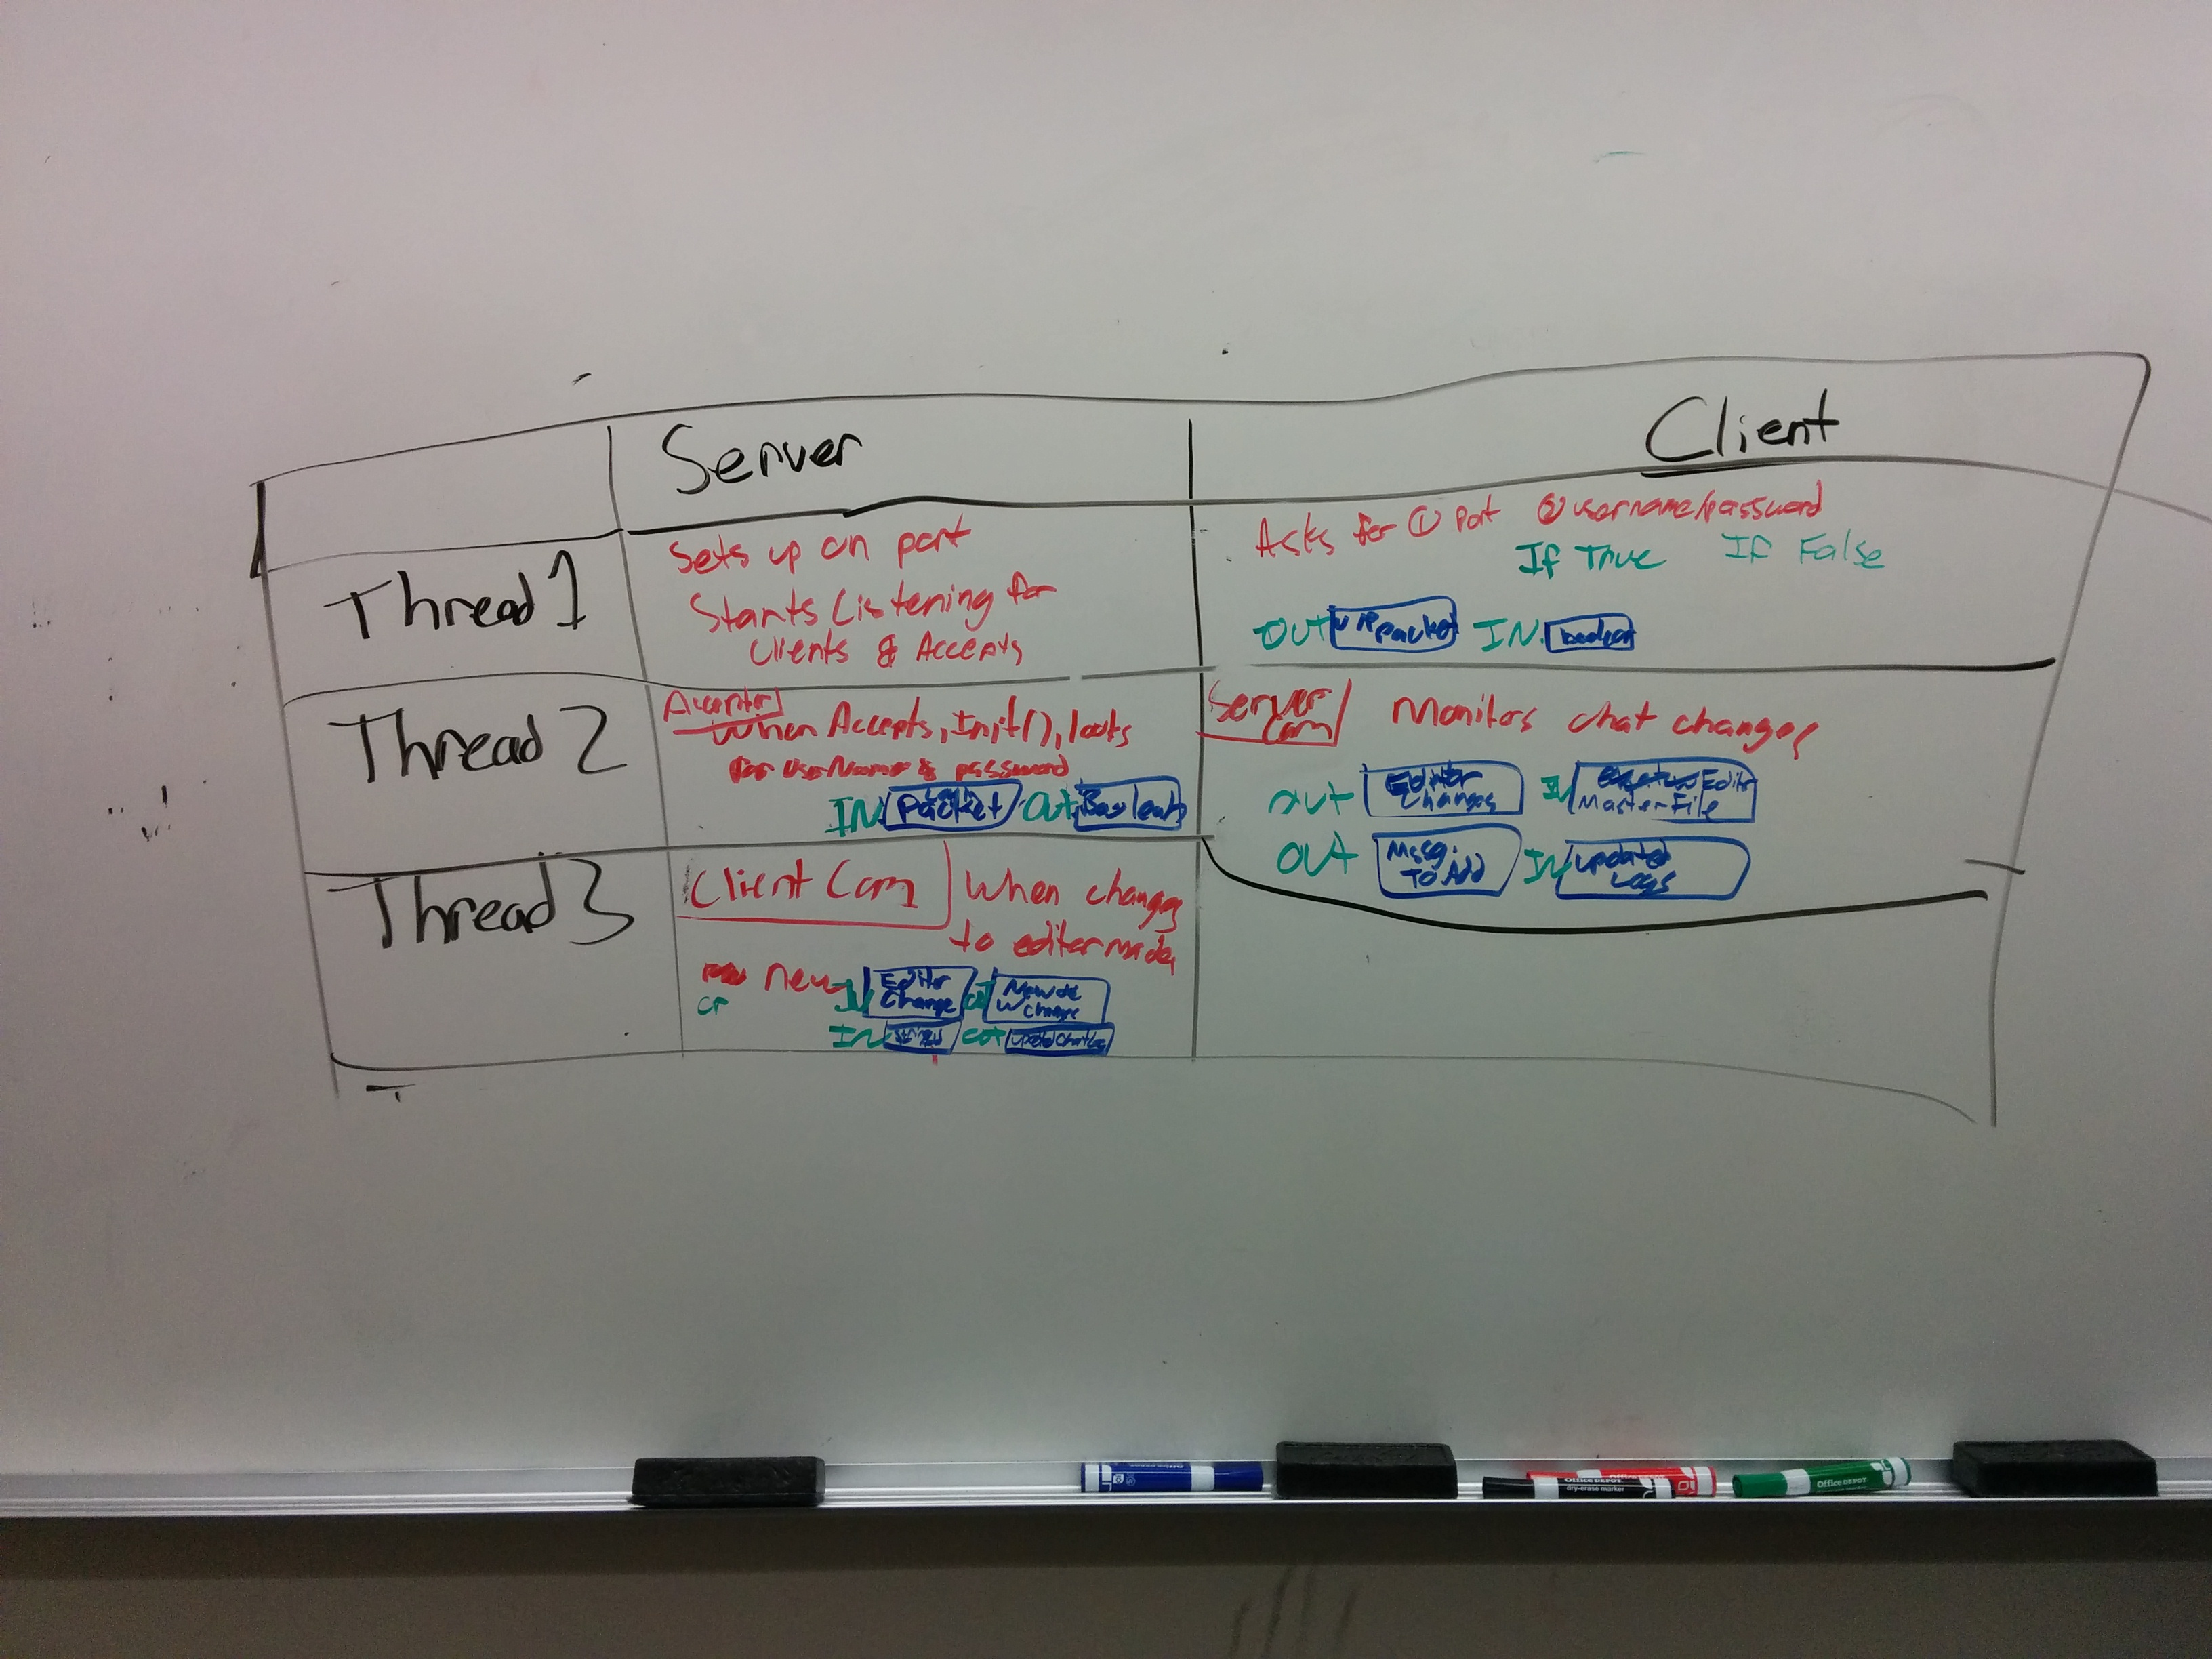 Server
Client
Thread 1
Sets up on port
Starts Listening for
Clients & Accepts
Asks for ① Port ② username/password
If True If False
OUT Packet IN boolean
Thread 2
Acceptor
When Accepts, Init(), looks
for UserName & password
IN Packet OUT Boolean
Server
Com
Monitors chat changes
OUT Editor
Changes
IN Editor
MasterFile
OUT Mssg.
To Add
IN updated
Logs
Thread 3
Client Com
When changes
to editor made,
new
IN Editor
Change
W change
IN OUT
Office DEPOT
dry-erase marker
Office DEPOT
Office DEPOT